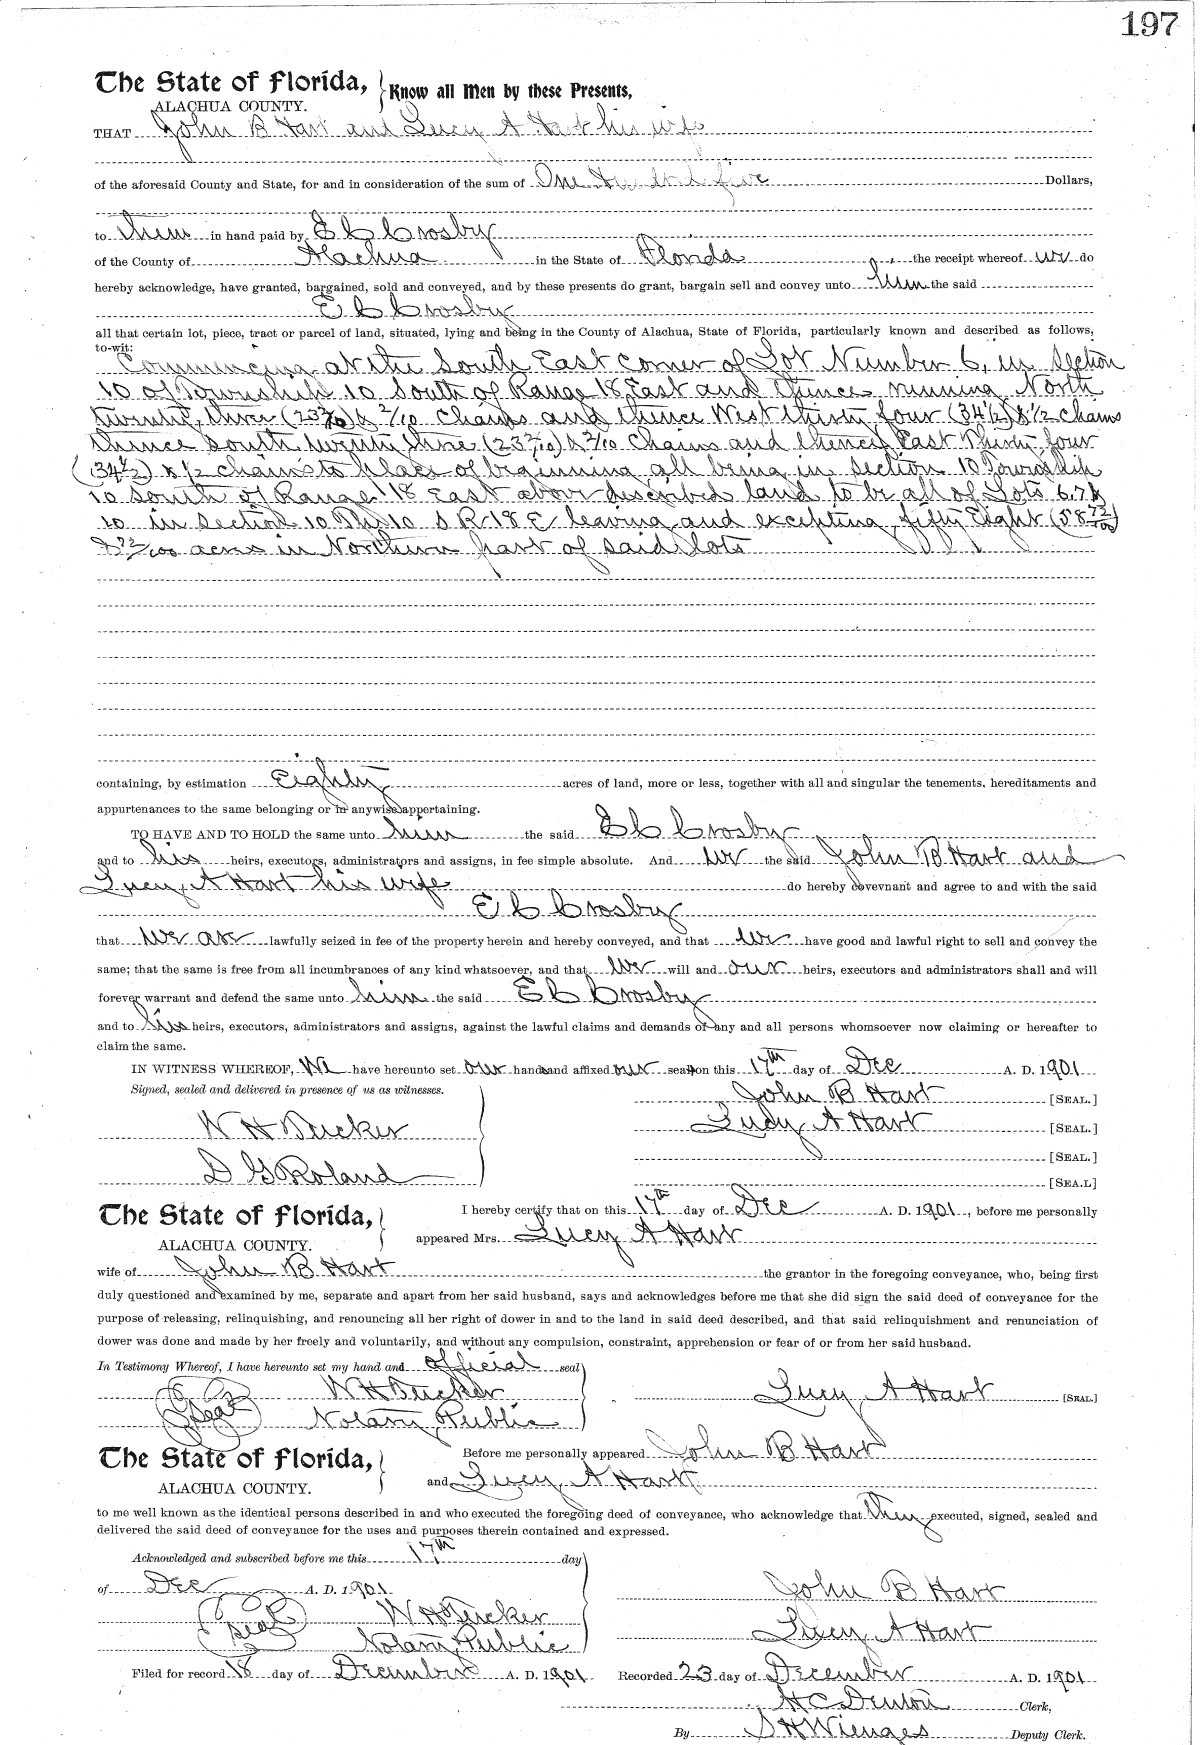 197
The State of Florida, Know all Men by these Presents,
ALACHUA COUNTY.
THAT John B Hart and Lucy A Hart his wife
of the aforesaid County and State, for and in consideration of the sum of One Hundred five Dollars,
to them in hand paid by E C Crosby
of the County of Alachua in the State of Florida the receipt whereof we do
hereby acknowledge, have granted, bargained, sold and conveyed, and by these presents do grant, bargain sell and convey unto him the said
E C Crosby
all that certain lot, piece, tract or parcel of land, situated, lying and being in the County of Alachua, State of Florida, particularly known and described as follows,
to-wit:
Commencing at the South East corner of Lot Number 6, in Section
10 of Township 10 South of Range 18 East and thence running North
twenty three (23 2/10) & 2/10 chains and thence West thirty four (34 1/2) & 1/2 chains
thence South twenty three (23 2/10) & 2/10 chains and thence East Thirty four
(34 1/2) & 1/2 chains to place of beginning all being in Section 10 Township
10 South of Range 18 East above described land to be all of Lots 6.7 &
10 in Section 10 Tp 10 S R 18 E leaving and excepting fifty Eight (58 72/100)
& 72/100 acres in Northern part of said lots
containing, by estimation Eighty acres of land, more or less, together with all and singular the tenements, hereditaments and
appurtenances to the same belonging or in anywise appertaining.
TO HAVE AND TO HOLD the same unto him the said E C Crosby
and to his heirs, executors, administrators and assigns, in fee simple absolute. And we the said John B Hart and
Lucy A Hart his wife do hereby covevnant and agree to and with the said
E C Crosby
that we are lawfully seized in fee of the property herein and hereby conveyed, and that we have good and lawful right to sell and convey the
same; that the same is free from all incumbrances of any kind whatsoever, and that we will and our heirs, executors and administrators shall and will
forever warrant and defend the same unto him the said E C Crosby
and to his heirs, executors, administrators and assigns, against the lawful claims and demands of any and all persons whomsoever now claiming or hereafter to
claim the same.
IN WITNESS WHEREOF, We have hereunto set our hands and affixed our seal on this 17th day of Dec A. D. 1901
Signed, sealed and delivered in presence of us as witnesses.
John B Hart [SEAL.]
W H Tucker Lucy A Hart [SEAL.]
[SEAL.]
D G Roland [SEA.L]
The State of Florida, I hereby certify that on this 17th day of Dec A. D. 1901, before me personally
ALACHUA COUNTY. appeared Mrs. Lucy A Hart
wife of John B Hart the grantor in the foregoing conveyance, who, being first
duly questioned and examined by me, separate and apart from her said husband, says and acknowledges before me that she did sign the said deed of conveyance for the
purpose of releasing, relinquishing, and renouncing all her right of dower in and to the land in said deed described, and that said relinquishment and renunciation of
dower was done and made by her freely and voluntarily, and without any compulsion, constraint, apprehension or fear of or from her said husband.
In Testimony Whereof, I have hereunto set my hand and official seal
Seal W H Tucker Lucy A Hart [SEAL]
Notary Public
The State of Florida, Before me personally appeared John B Hart
ALACHUA COUNTY. and Lucy A Hart
to me well known as the identical persons described in and who executed the foregoing deed of conveyance, who acknowledge that they executed, signed, sealed and
delivered the said deed of conveyance for the uses and purposes therein contained and expressed.
Acknowledged and subscribed before me this 17th day
of Dec A. D. 1901 John B Hart
Seal W H Tucker Lucy A Hart
Notary Public
Filed for record 18 day of December A. D. 1901 Recorded 23 day of December A. D. 1901
H C Denton Clerk,
By S H Wienges Deputy Clerk.